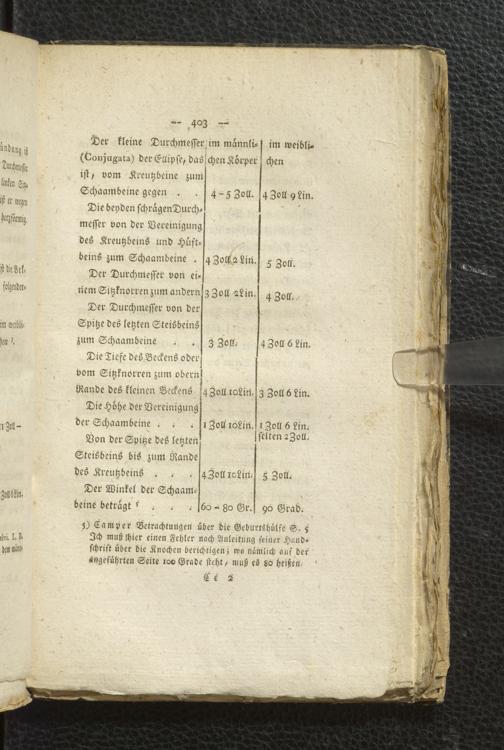 — 403 —
Der kleine Durchmesser im männli- im weibli-
(Conjugata) der Ellipse, das chen Körper chen
ist, vom Kreutzbeine zum
Schaambeine gegen . . 4-5 Zoll. 4 Zoll 9 Lin.
Die beyden schrägen Durch-
messer von der Vereinigung
des Kreutzbeins und Hüft-
beins zum Schaambeine . 4 Zoll 2 Lin. 5 Zoll.
Der Durchmesser von ei-
nem Sitzknorren zum andern 3 Zoll 2 Lin. 4 Zoll.
Der Durchmesser von der
Spitze des letzten Steisbeins
zum Schaambeine . . 3 Zoll. 4 Zoll 6 Lin.
Die Tiefe des Beckens oder
vom Sitzknorren zum obern
Rande des kleinen Beckens 4 Zoll 10 Lin. 3 Zoll 6 Lin.
Die Höhe der Vereinigung
der Schaambeine . . . 1 Zoll 10 Lin. 1 Zoll 6 Lin.
selten 2 Zoll.
Von der Spitze des letzten
Steisbeins bis zum Rande
des Kreutzbeins . . . 4 Zoll 10 Lin. 5 Zoll.
Der Winkel der Schaam-
beine beträgt ⁵ . . . 60-80 Gr. 90 Grad.
5) Camper Betrachtungen über die Geburtshülfe S. 5
Ich muß hier einen Fehler nach Anleitung seiner Hand-
schrift über die Knochen berichtigen; wo nämlich auf der
angeführten Seite 100 Grade steht, muß es 80 heißen.
Cc 2